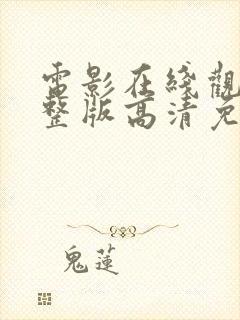 電影在綫觀
整版高清免
鬼蓮